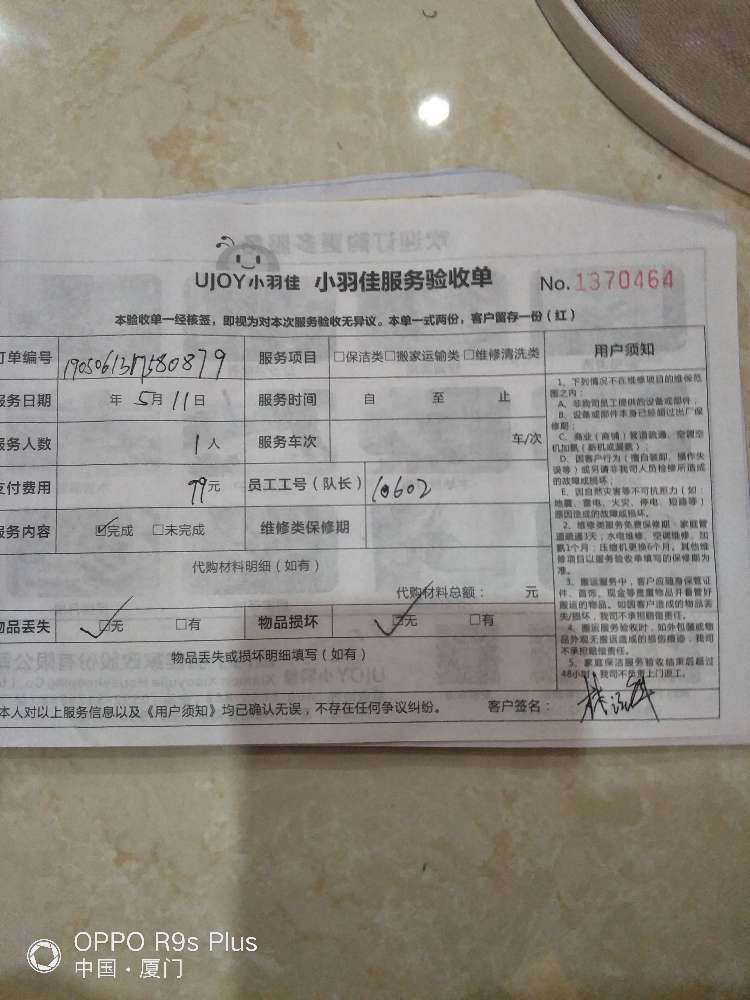 UJOY小羽佳 小羽佳服务验收单 No.1370464
本验收单一经核签，即视为对本次服务验收无异议。本单一式两份，客户留存一份（红）
订单编号 服务项目 □保洁类□搬家运输类□维修清洗类
服务日期 年 5月11日 服务时间 自 至 止
服务人数 1人 服务车次 车/次
支付费用 79元 员工工号（队长） 10602
服务内容 ☑完成 □未完成 维修类保修期
代购材料明细（如有）
代购材料总额： 元
物品丢失 ☑无 □有 物品损坏 ☑无 □有
物品丢失或损坏明细填写（如有）
本人对以上服务信息以及《用户须知》均已确认无误，不存在任何争议纠纷。 客户签名：
用户须知
1、下列情况不在维修项目的维保范
围之内：
A、非我司员工提供的设备或部件；
B、设备或部件本身已经超过出厂保
修期；
C、商业（商铺）管道疏通、空调空
机加氟（新机或漏氟）；
D、因客户行为（擅自装卸、操作失
误等）或另请非我司人员检修所造成
的故障或损坏；
E、因自然灾害等不可抗拒力（如：
地震、雷电、火灾、停电、短路等）
原因造成的故障或损坏。
2、维修类服务免费保修期：家庭管
道疏通3天；水电维修、空调维修、加
氟1个月；压缩机更换6个月。其他维
修项目以服务验收单填写的保修期为
准。
3、搬运服务中，客户应随身保管证
件、首饰、现金等贵重物品并看管好
搬运的物品。如因客户造成的物品丢
失/损坏，我司不承担赔偿责任。
4、搬运服务验收时，如外包装或物
品外观无搬运造成的损伤痕迹，我司
不承担赔偿责任。
5、家庭保洁服务验收结束后超过
48小时，我司不负责上门返工。
OPPO R9s Plus
中国·厦门